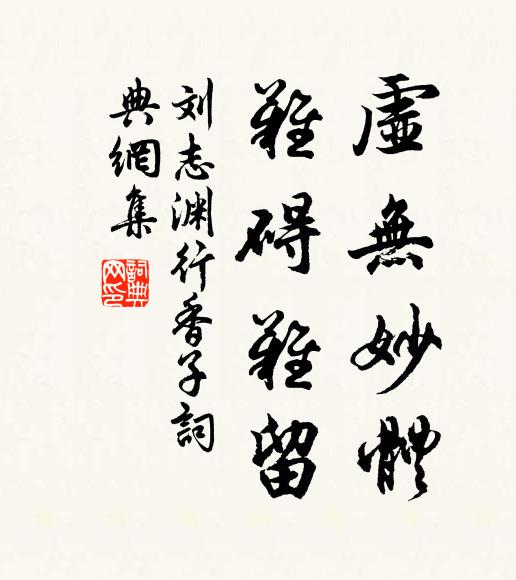 虛無妙體
難碍難留
刘志渊行香子詞
典網集
詞典
网印